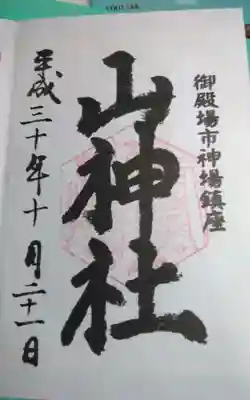 御殿場市神場鎮座
山神社
平成三十年十月二十一日